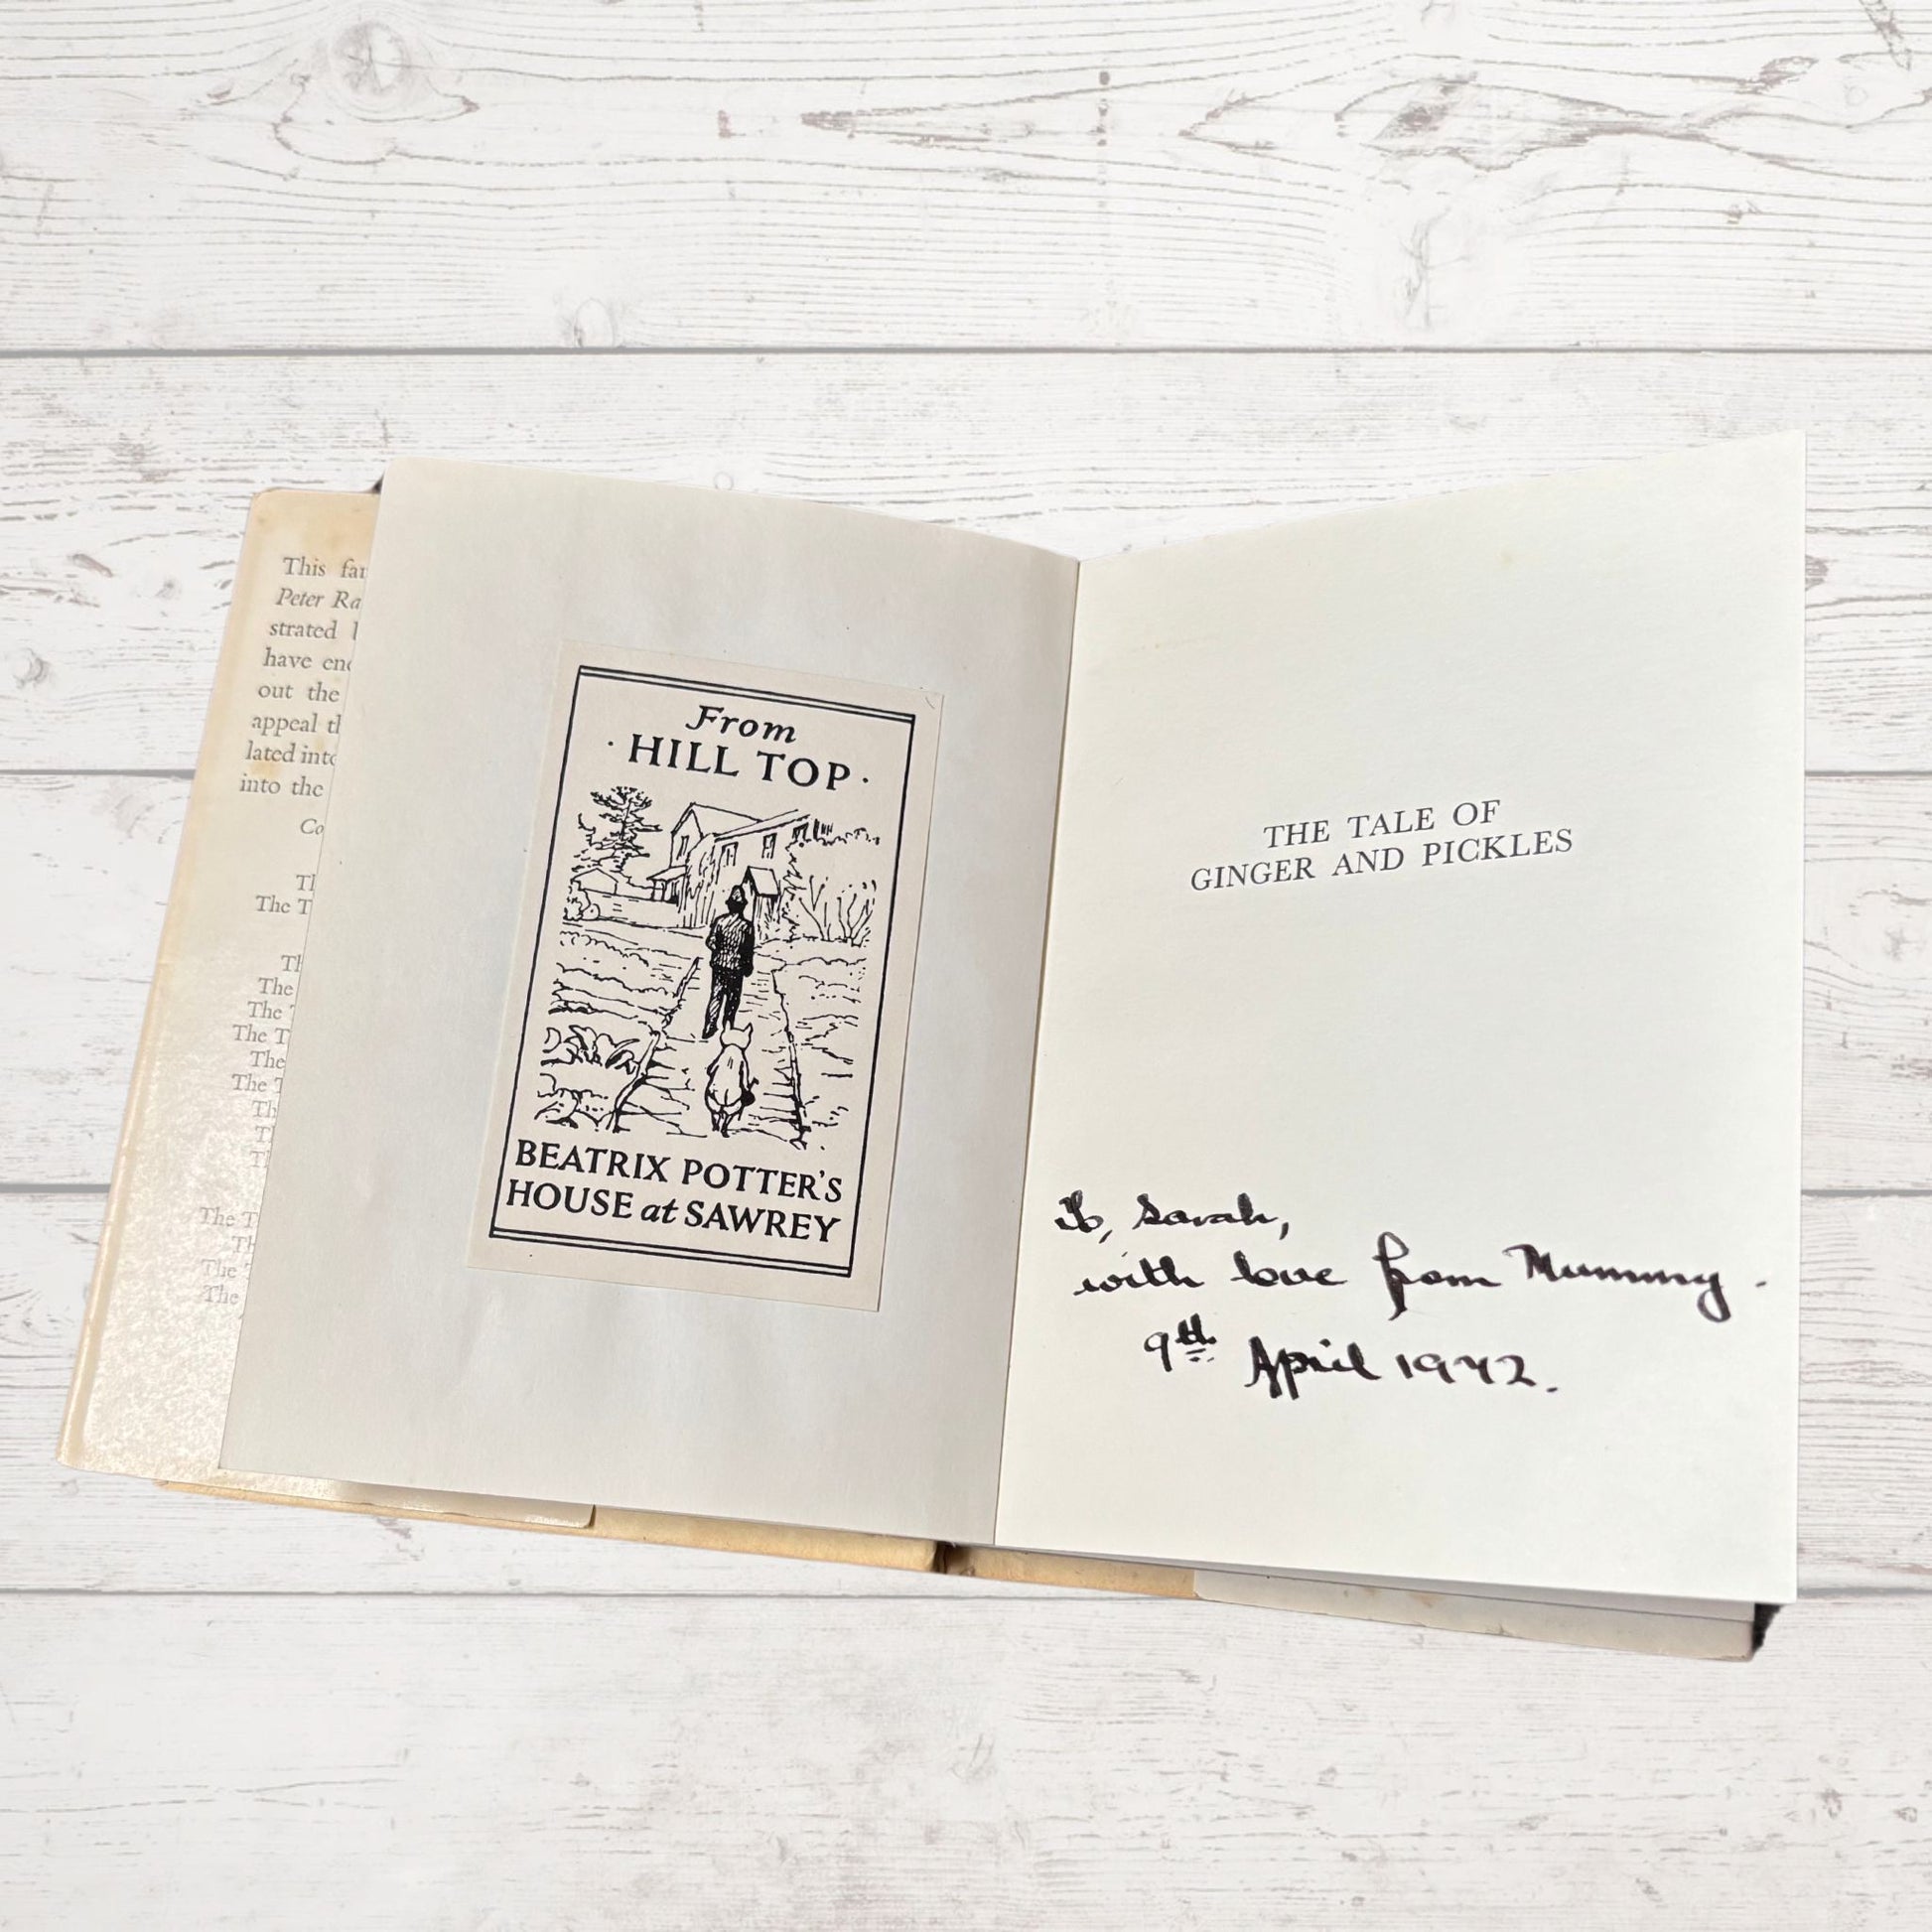 This
Peter
strated
have
out the
appeal
lated
into the
The
The
The
The
The
The
The
The
The
From
· HILL TOP ·
BEATRIX POTTER'S
HOUSE at SAWREY
THE TALE OF
GINGER AND PICKLES
To, Sarah,
with love from Mummy.
9th April 1972.